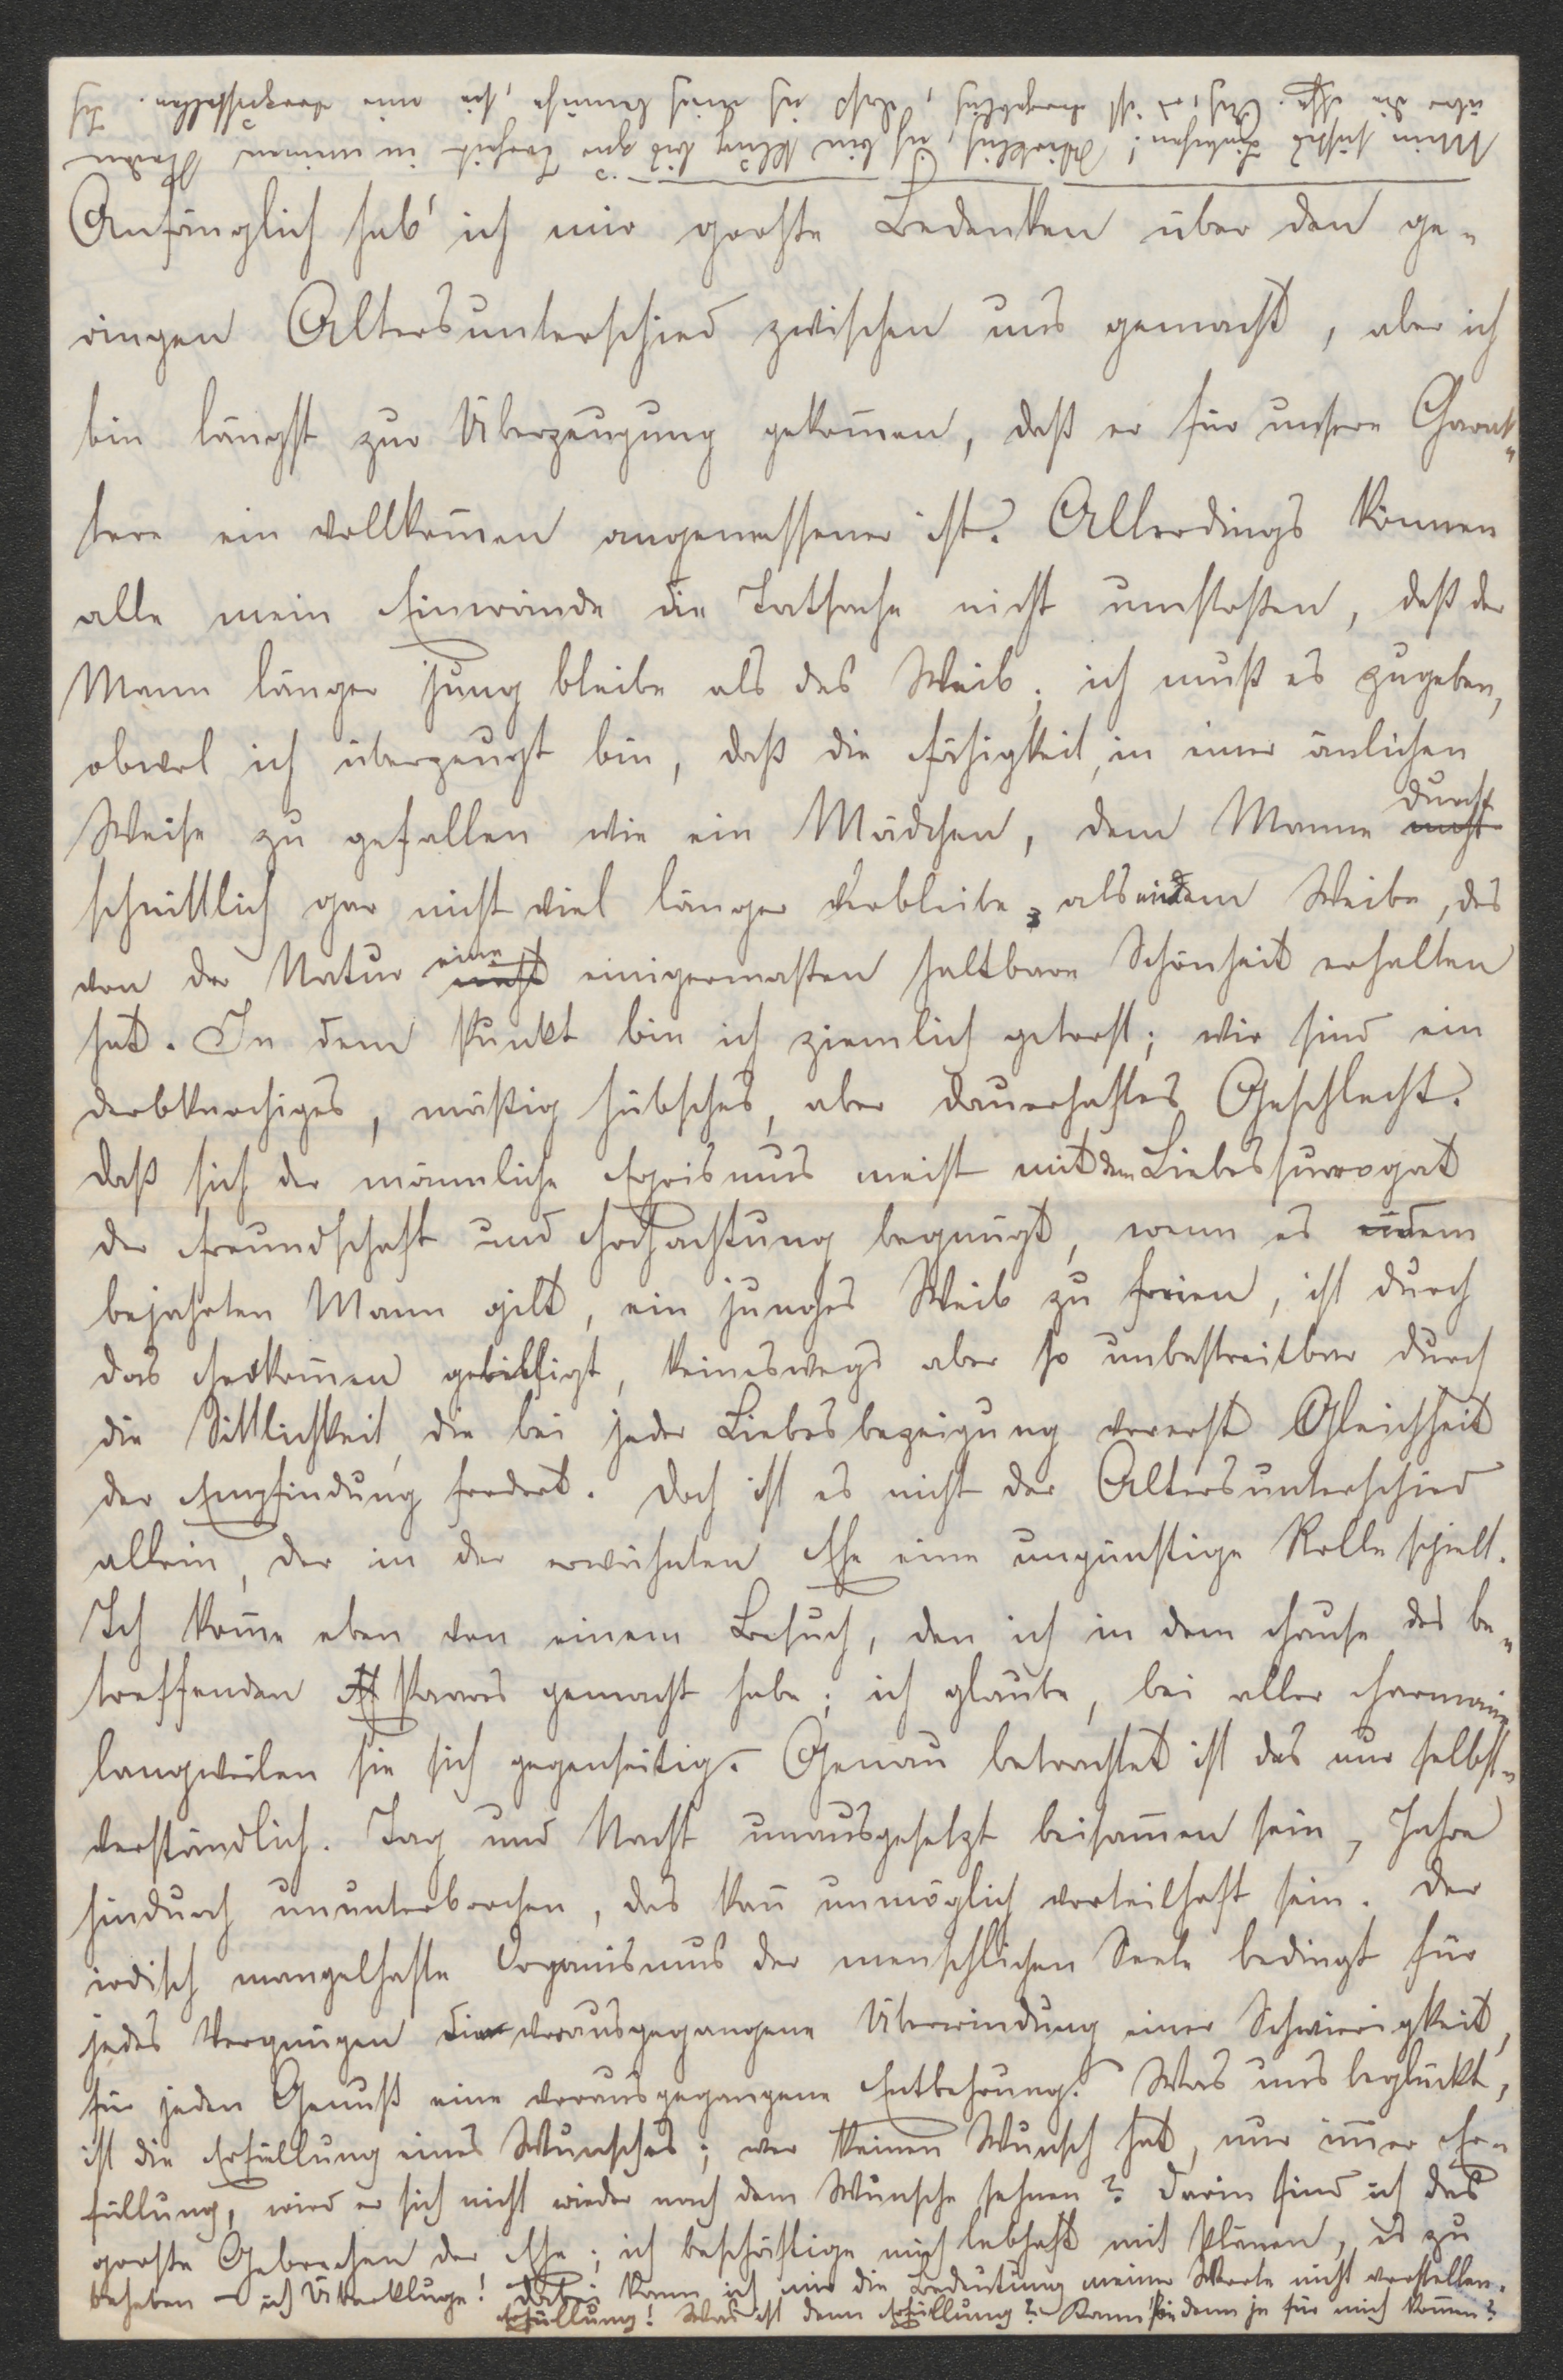 Mein süßes Fräulchen! Wirklich, ich bin klug bis zur Torheit in meinen Reden
über die Ehe. Und es ist vergeblich, daß ich mich bemühe, sie mir vorzustellen. Ich
Anfänglich hab' ich mir große Bedenken über den ge-
ringen Altersunterschied zwischen uns gemacht, aber ich
bin längst zur Überzeugung gekom̄en, daß er für unsere Charak-
tere ein vollkom̄en angemessener ist. Allerdings können
alle mein Einwände die Tatsache nicht umstoßen, daß der
Mann länger jung bleibe als das Weib; ich muß es zugeben,
obwol ich überzeugt bin, daß die Fähigkeit, in einer änlichen
Weise zu gefallen wie ein Mädchen, dem Manne durch
schnittlich gar nicht viel länger verbleibe, als dem Weibe, das
von der Natur eine einigermaßen haltbare Schönheit erhalten
hat. In dem Punkt bin ich ziemlich getrost; wir sind ein
derbknochiges, mäßig hübsches, aber dauerhaftes Geschlecht.
Daß sich der männliche Egoismus meist mit dem Liebessurrogat
der Freundschaft und Hochachtung begnügt, wenn es einem
bejahrten Mann gilt, ein junges Weib zu freien, ist durch
das Herkom̄en gebilligt, keineswegs aber so unbestreitbar durch
die Sittlichkeit, die bei jeder Liebesbezeigung vorerst Gleichheit
der Empfindung fordert. Doch ist es nicht der Altersunterschied
allein, der in der erwähnten Ehe eine ungünstige Rolle spielt.
Ich kom̄e eben von einem Besuch, den ich in dem Hause des be-
treffenden Paares gemacht habe; ich glaube, bei aller Harmonie
langweilen sie sich gegenseitig. Genau betrachtet ist das nur selbst-
verständlich. Tag und Nacht unausgesetzt beisam̄en sein, Jahre
hindurch ununterbrochen, das kan̄ unmöglich vorteilhaft sein. Der
irdisch mangelhafte Organismus der menschlichen Seele bedingt für
jedes Vergnügen die vorausgegangene Überwindung einer Schwierigkeit,
für jeden Genuß eine vorausgegangene Entbehrung. Was uns beglückt,
ist die Erfüllung eines Wunsches; wer keinen Wunsch hat, nur im̄er Er-
füllung, wird er sich nicht wieder nach dem Wunsche sehnen? Darin find ich das
große Gebrechen der Ehe; ich beschäftige mich lebhaft mit Plänen, es zu
beheben – ich Überkluge! Dabei kann ich mir die Bedeutung meiner Worte nicht vorstellen.
Erfüllung! Was ist denn Erfüllung? Kann sie denn je für mich kom̄en?